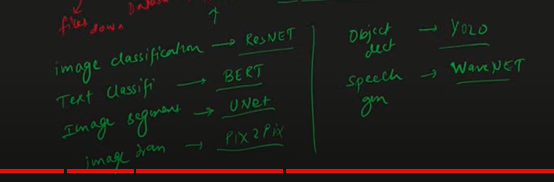 files down Datas
image classification → ResNET
Text classifi → BERT
Image segment → UNet
image tran → PIX2PIX
Object
dect → YOLO
Speech
gen → WaveNET